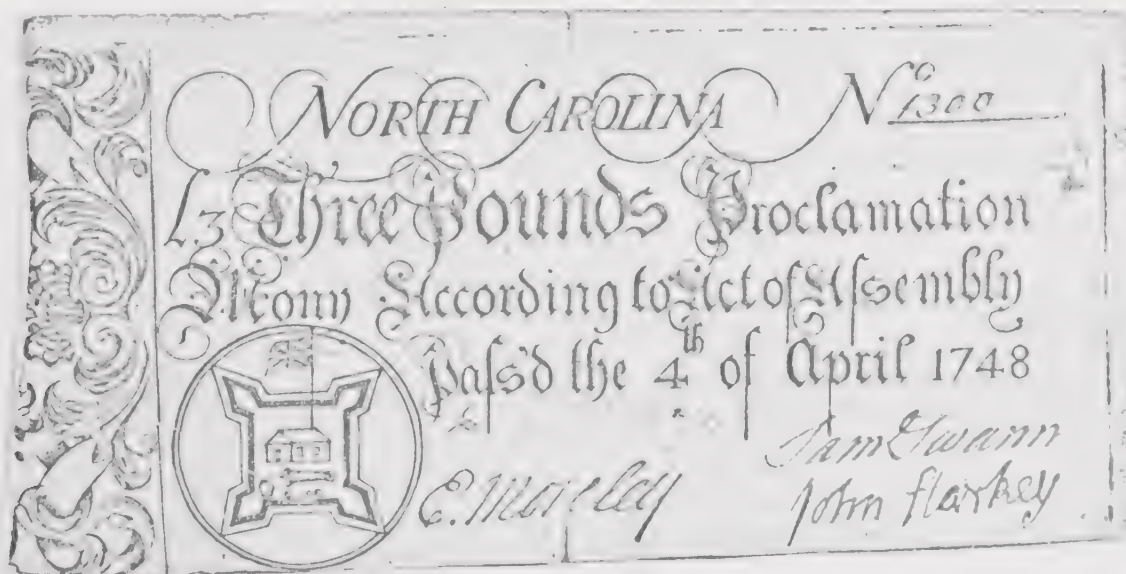 NORTH CAROLINA Nº 1300
£3 Three Pounds Proclamation
Mony According to Act of Assembly
Pass'd the 4th of April 1748
Sam Swann
E. Moseley John Starkey